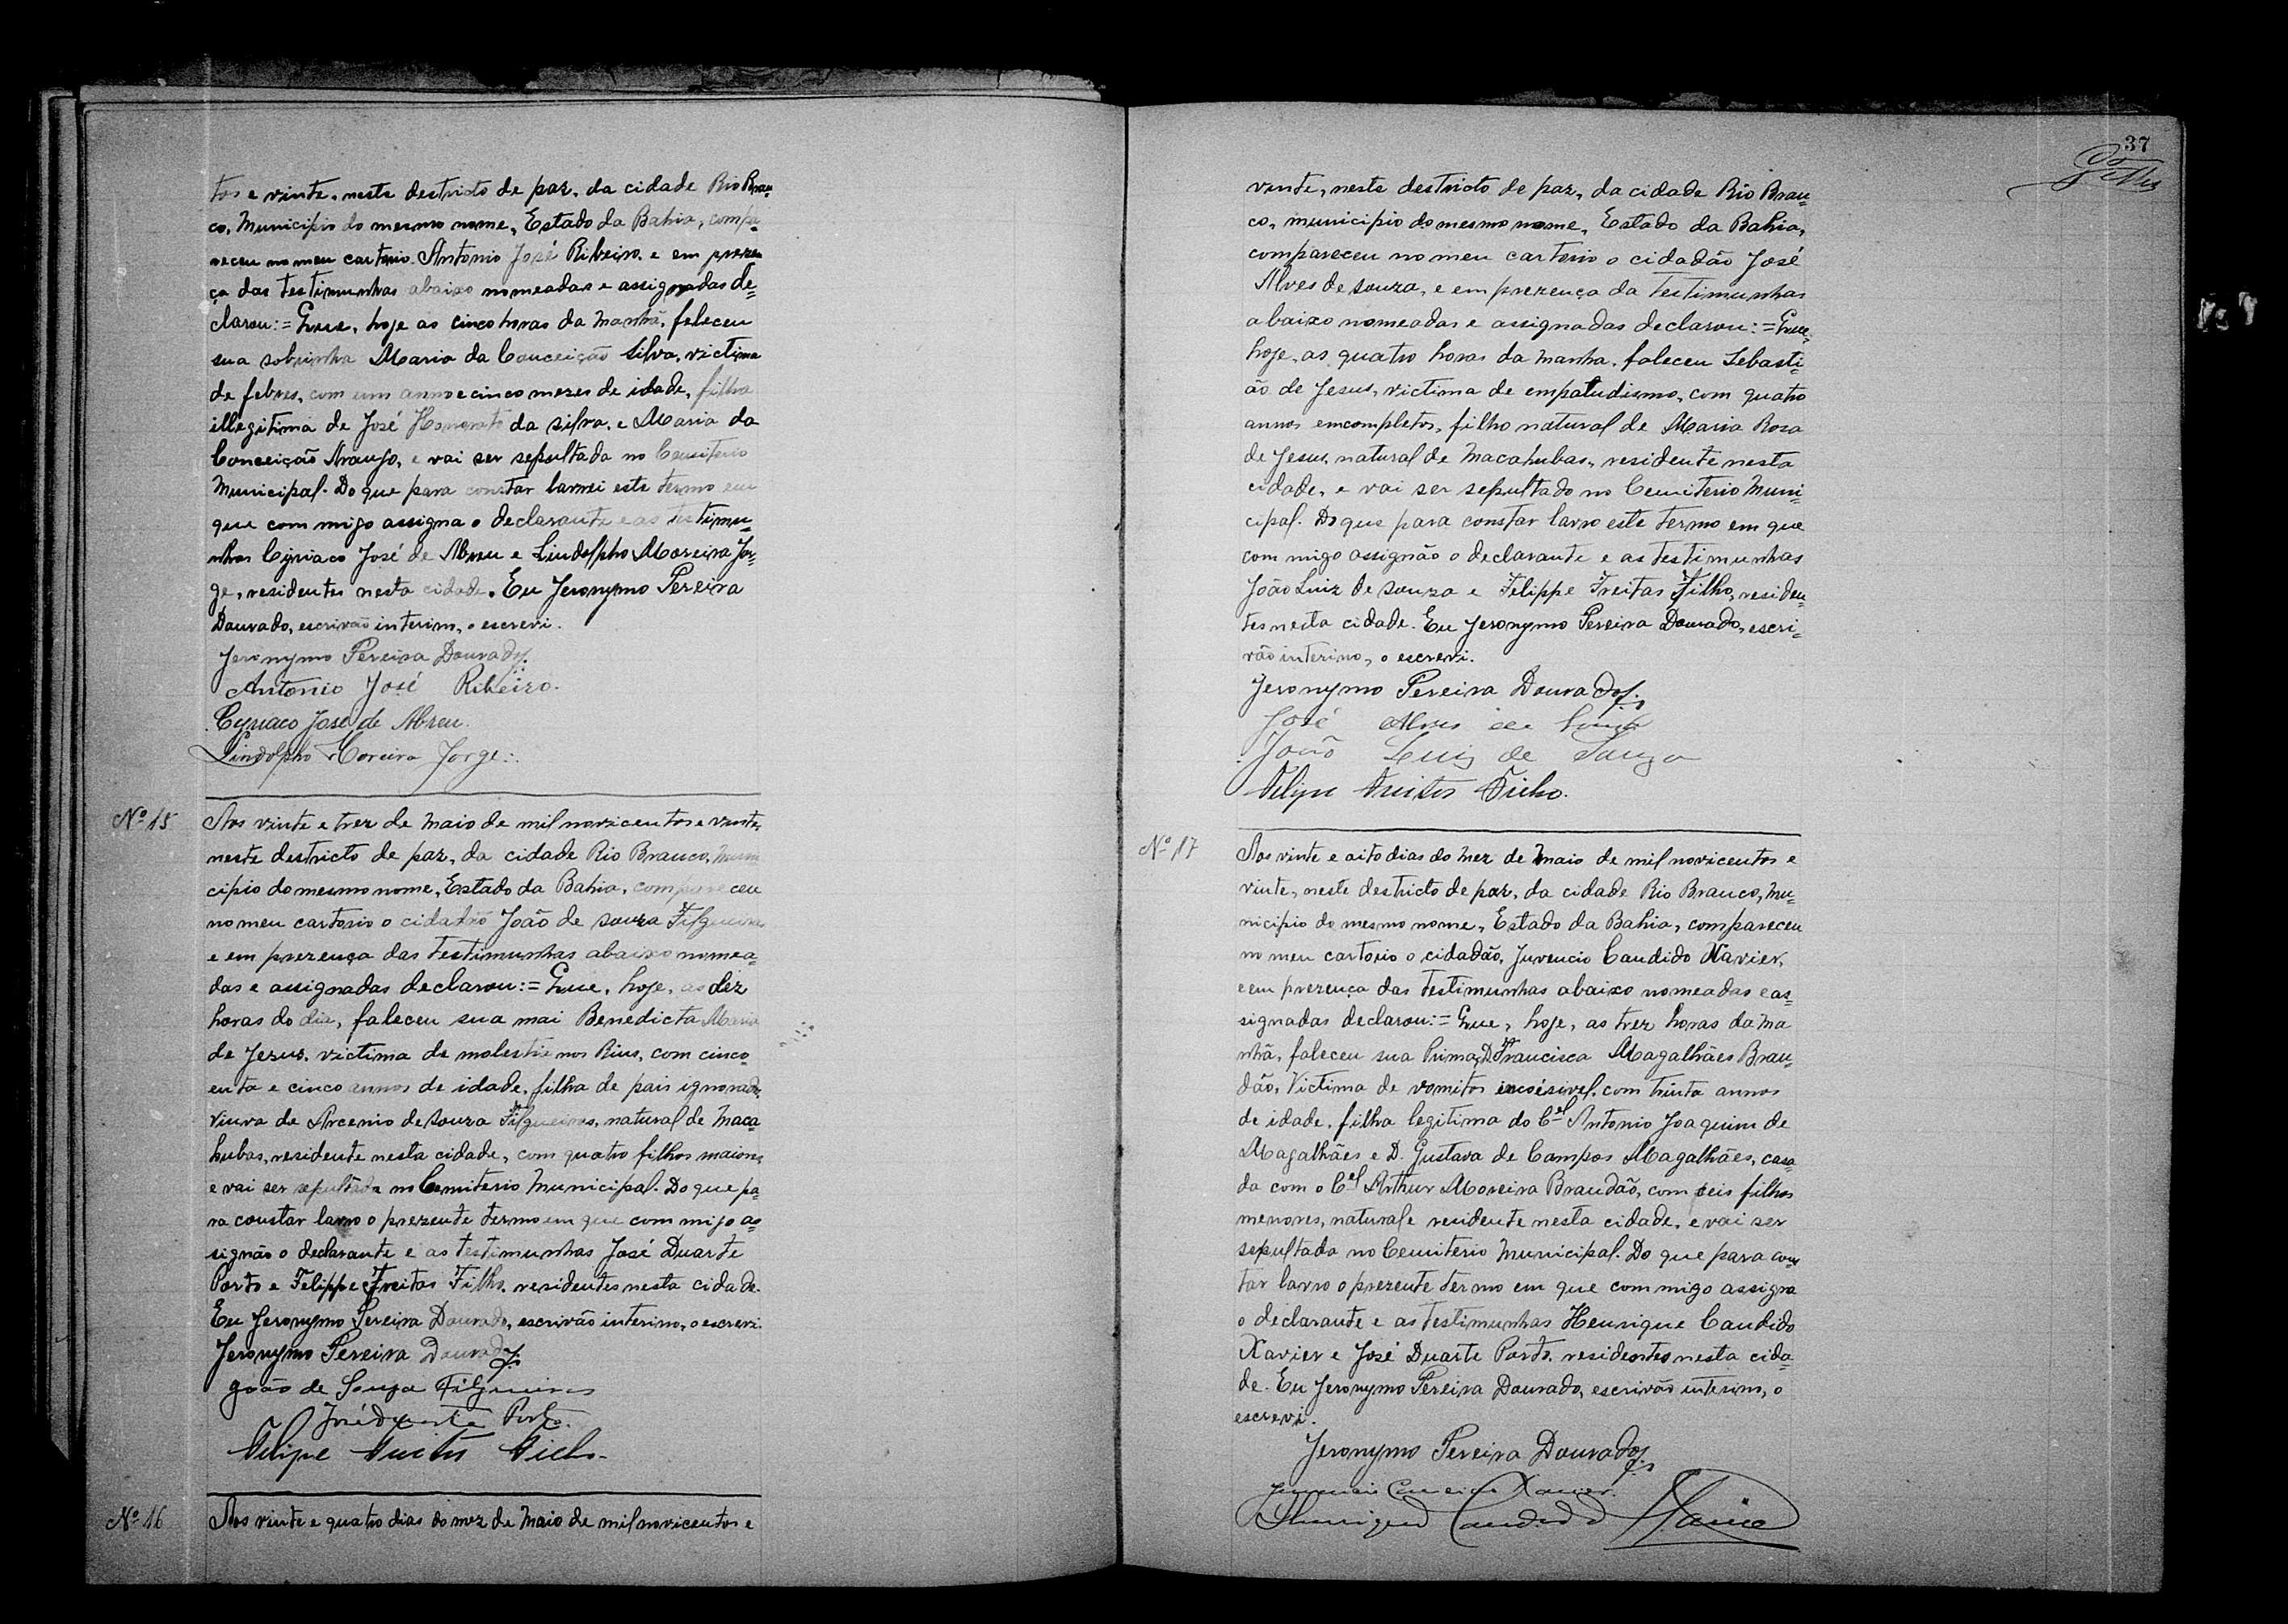 tos e vinte, neste destricto de paz, da cidade Rio Bran=
co, Municipio do mesmo nome, Estado da Bahia, compa=
receu no meu cartorio. Antonio José Ribeiro, e em prezen
ça das testimunhas abaixo nomeadas e assignadas de=
clarou:= Que, hoje as cinco horas da manhã, faleceu
sua sobrinha Maria da Conceição Silva, victima
de febres, com um anno e cinco mezes de idade, filha
illegitima de José Honorato da Silva, e Maria da
Conceição Araujo, e vai ser sepultada no Cemiterio
Municipal. Do que para constar lavrei este termo em
que com migo assigna o declarante e as testimu=
nhas Cyriaco José de Abreu e Lindolpho Moreira Jor=
ge, residentes nesta cidade. Eu Jeronymo Pereira
Dourado, escrivão interim, o escrevi.
Jeronymo Pereira Dourado
Antonio José Ribeiro.
Cyriaco José de Abreu.
Lindolpho Moreira Jorge.
Nº 15
Aos vinte e trez de maio de mil novicentos e vinte,
neste destricto de paz, da cidade Rio Branco, Muni
cipio do mesmo nome, Estado da Bahia, compareceu
no meu cartorio o cidadão João de Souza Filgueiras
e em prezença das testimunhas abaixo nomea=
das e assignadas declarou:= Que, hoje, as dez
horas do dia, faleceu sua mai Benedicta Maria
de Jezus, victima de molestia nos Rius, com cinco=
enta e cinco annos de idade, filha de pais ignorados,
viuva de Arcenio de Souza Filgueiras, natural de Maca=
hubas, residente nesta cidade, com quatro filhos maiores,
e vai ser sepultada no Cemiterio Municipal. Do que pa=
ra constar lavro o prezente termo em que com migo as=
signão o declarante e as testimunhas José Duarte
Porto e Felippe Freitas Filho, residentes nesta cidade.
Eu Jeronymo Pereira Dourado, escrivão interino, o escrevi.
Jeronymo Pereira Dourado
João de Souza Filgueiras
José Duarte Porto.
Felipe Freitas Filho.
Nº 16
Aos vinte e quatro dias do mez de Maio de mil novicentos e
37
vinte, neste destricto de paz, da cidade Rio Bran=
co, municipio do mesmo nome, Estado da Bahia,
compareceu no meu cartorio o cidadão José
Alves de Souza, e em prezença da testimunhas
abaixo nomeadas e assignadas declarou:= Que,
hoje, as quatro horas da manha, faleceu Sebasti=
ão de Jesus, victima de empaludismo, com quatro
annos emcompletos, filho natural de Maria Roza
de Jesus, natural de Macahubas, residente nesta
cidade, e vai ser sepultado no Cemiterio Muni=
cipal. Do que para constar lavro este termo em que
com migo assignão o declarante e as testimunhas
João Luiz de Souza e Felippe Freitas Filho, residen=
tes nesta cidade. Eu Jeronymo Pereira Dourado, escri=
vão interino, o escrevi.
Jeronymo Pereira Dourado
José Alves de Souza
João Luiz de Souza
Felipe Freitas Filho.
Nº 17
Aos vinte e oito dias do mez de Maio de mil novicentos e
vinte, neste destricto de paz, da cidade Rio Branco, mu=
nicipio do mesmo nome, Estado da Bahia, compareceu
no meu cartorio o cidadão, Juvencio Candido Xavier,
e em prezença das testimunhas abaixo nomeadas e as=
signadas declarou:= Que, hoje, as trez horas da ma
nhã, faleceu sua Prima, D. Francisca Magalhães Bran=
dão, Victima de vomitos encoésivel, com trinta annos
de idade, filha legitima do Cel Antonio Joaquim de
Magalhães e D. Gustava de Campos Magalhães, casa=
da com o Cel Arthur Moreira Brandão, com seis filhos
menores, natural e residente nesta cidade, e vai ser
sepultada no Cemiterio Municipal. Do que para cons
tar lavro o prezente termo em que com migo assigna
o declarante e as testimunhas Henrique Candido
Xavier e José Duarte Porto, residentes nesta cida=
de. Eu Jeronymo Pereira Dourado, escrivão interim, o
escrevi.
Jeronymo Pereira Dourado
Juvencio Candido Xavier.
Henrique Candido Xavier